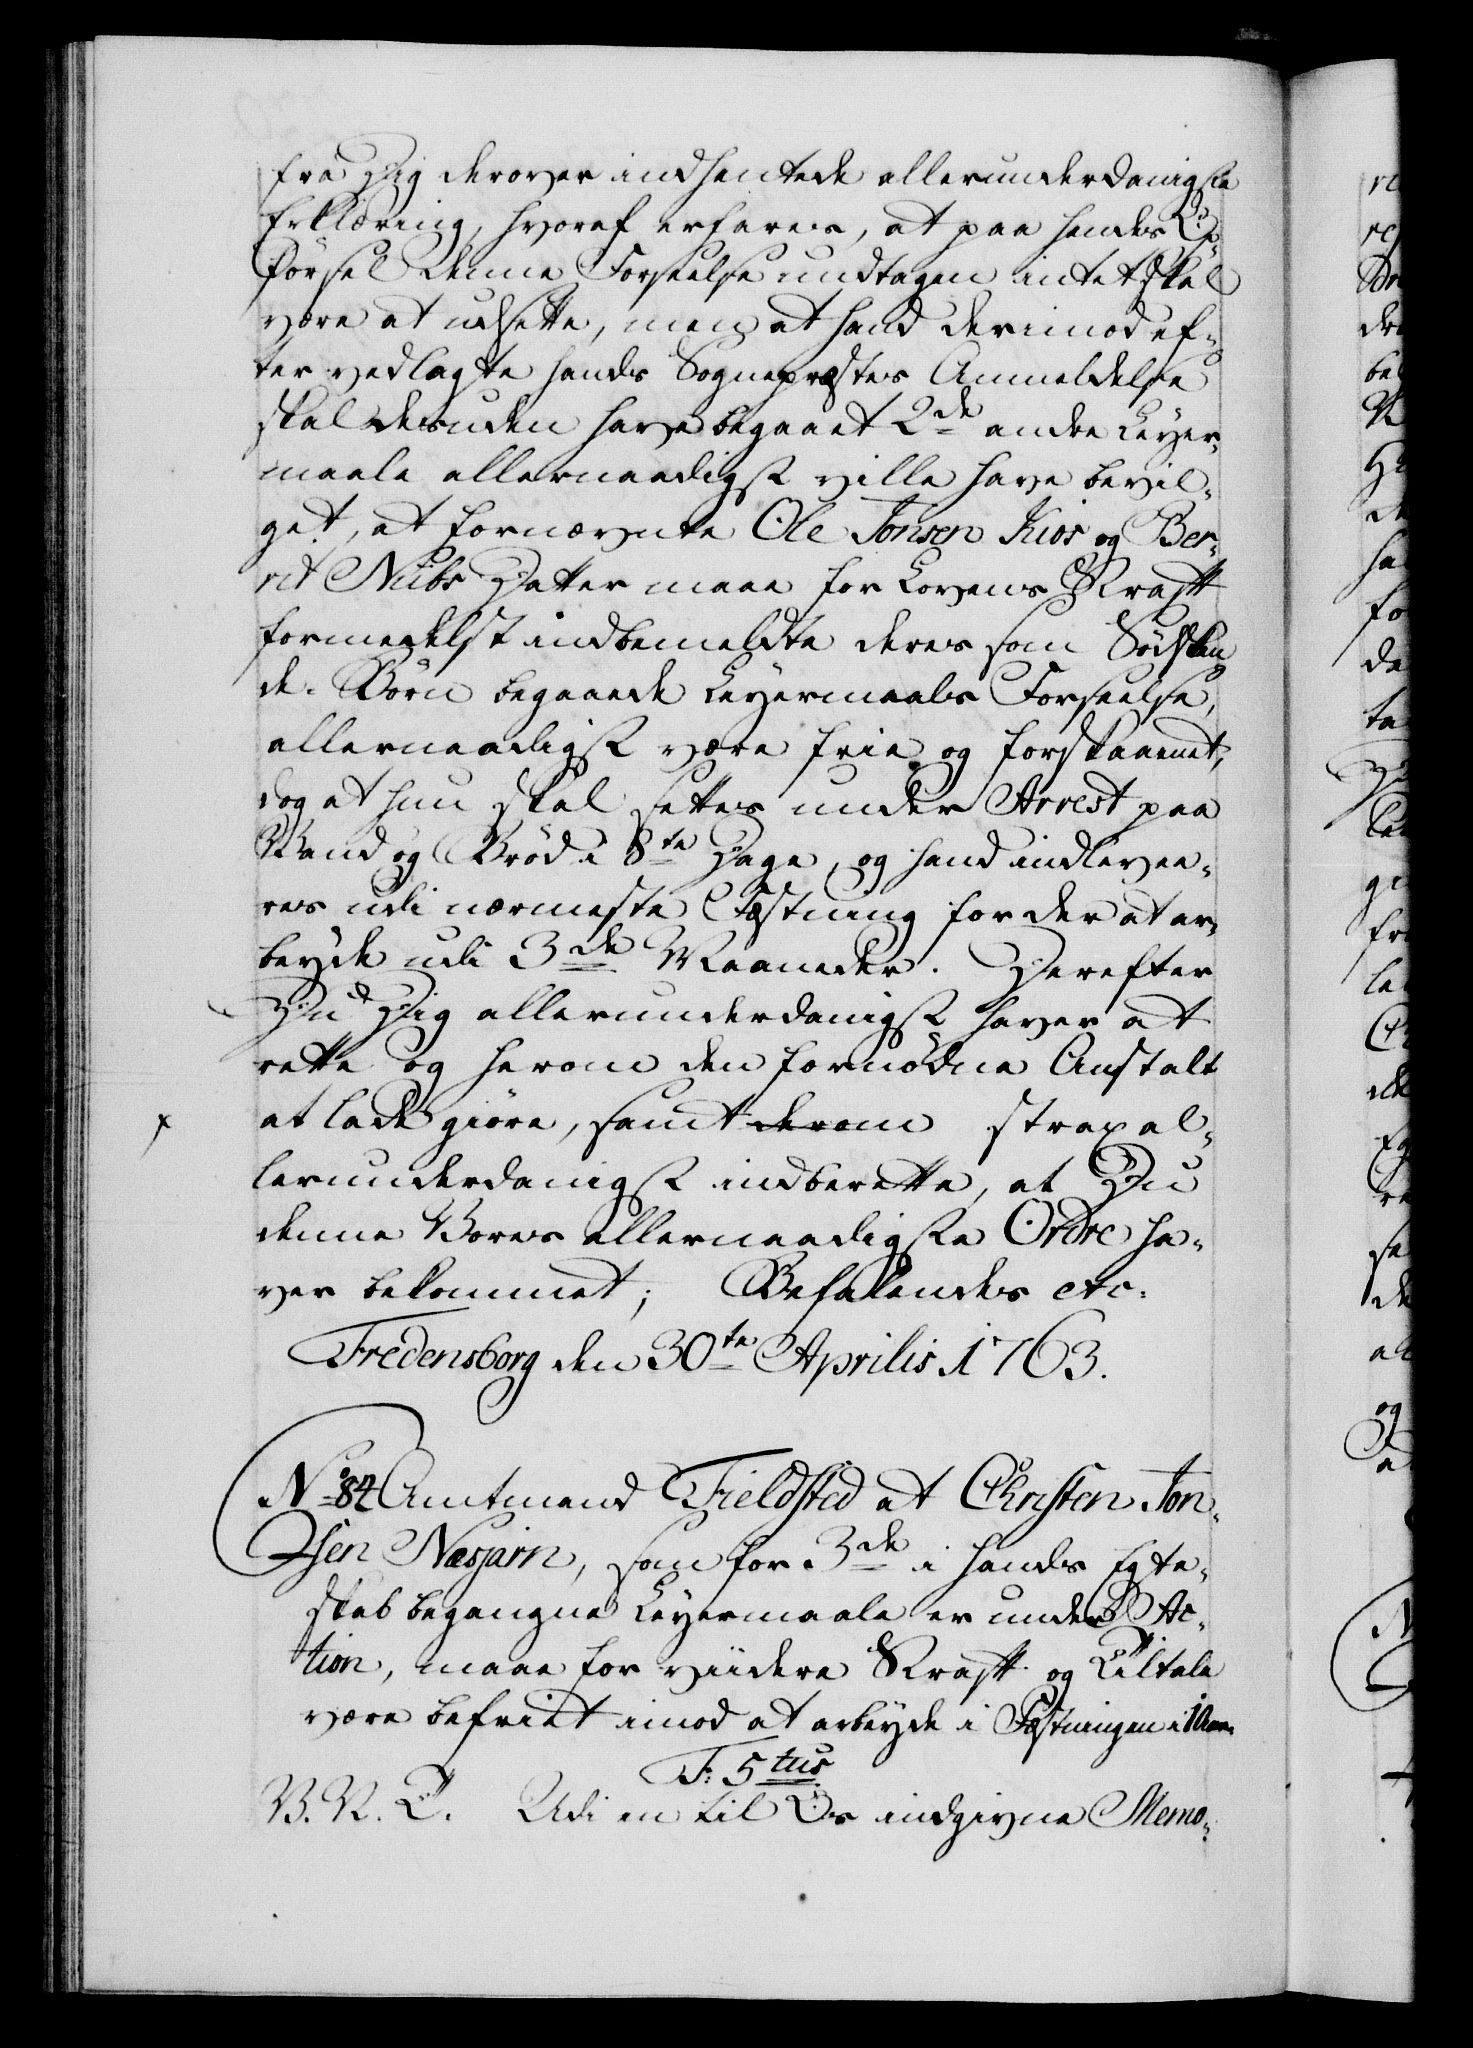 fra Dig derover indhentede allerunderdanigste
Erklæring, hvoraf erfares, at paa hendes Op-
førsel denne Forseelse undtagen intet skal
være at udsette, men at hand derimod ef-
ter vedlagte hands Sognepræstes Anmeldelse
skal desuden have begaaet 2de andre Leyer-
maale allernaadigst ville have bevil-
get, at fornævnte Ole Jonsen Kios og Ber-
rit Niels Datter maae for Lovens Straff
formedelst indbemeldte deres som Sødsken-
de-Børn begaaede Leyermaals Forseelse,
allernaadigst være frie og forskaanet,
dog at hun skal settes under Arrest paa
Vand og Brød i 8te Dage, og hand indlevee-
res udi nærmeste Fæstning for der at ar-
beyde udi 3de Maaneder. Derefter
Du Dig allerunderdanigst haver at
rette og herom den fornødne Anstalt
at lade giøre, samt derom strax al-
lerunderdanigst indberette, at Du
denne Vores allernaadigste Ordre ha-
ver bekommet; Befalendes etc.
Fredensborg den 30te Aprilis 1763.
No 84 Amtmand Fieldsted at Christen Jon-
sen Næsjarn, som for 3de i hands Egte-
skab begangne Leyermaale er under Ac-
tion, maae for viidere Straff og Tiltale
være befriet imod at arbeyde i Fæstningen i 1 Aar
F: 5tus
V. N. T. Udi en til Os indgivne Memo-